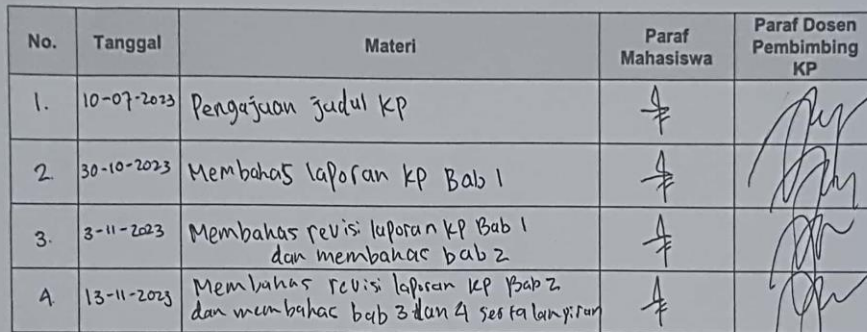 No. Tanggal Materi Paraf Mahasiswa Paraf Dosen Pembimbing KP
1. 10-07-2023 Pengajuan judul KP
2. 30-10-2023 Membahas laporan KP Bab 1
3. 3-11-2023 Membahas revisi laporan KP Bab 1
dan membahas bab 2
4. 13-11-2023 Membahas revisi laporan KP Bab 2
dan membahas bab 3 dan 4 serta lampiran